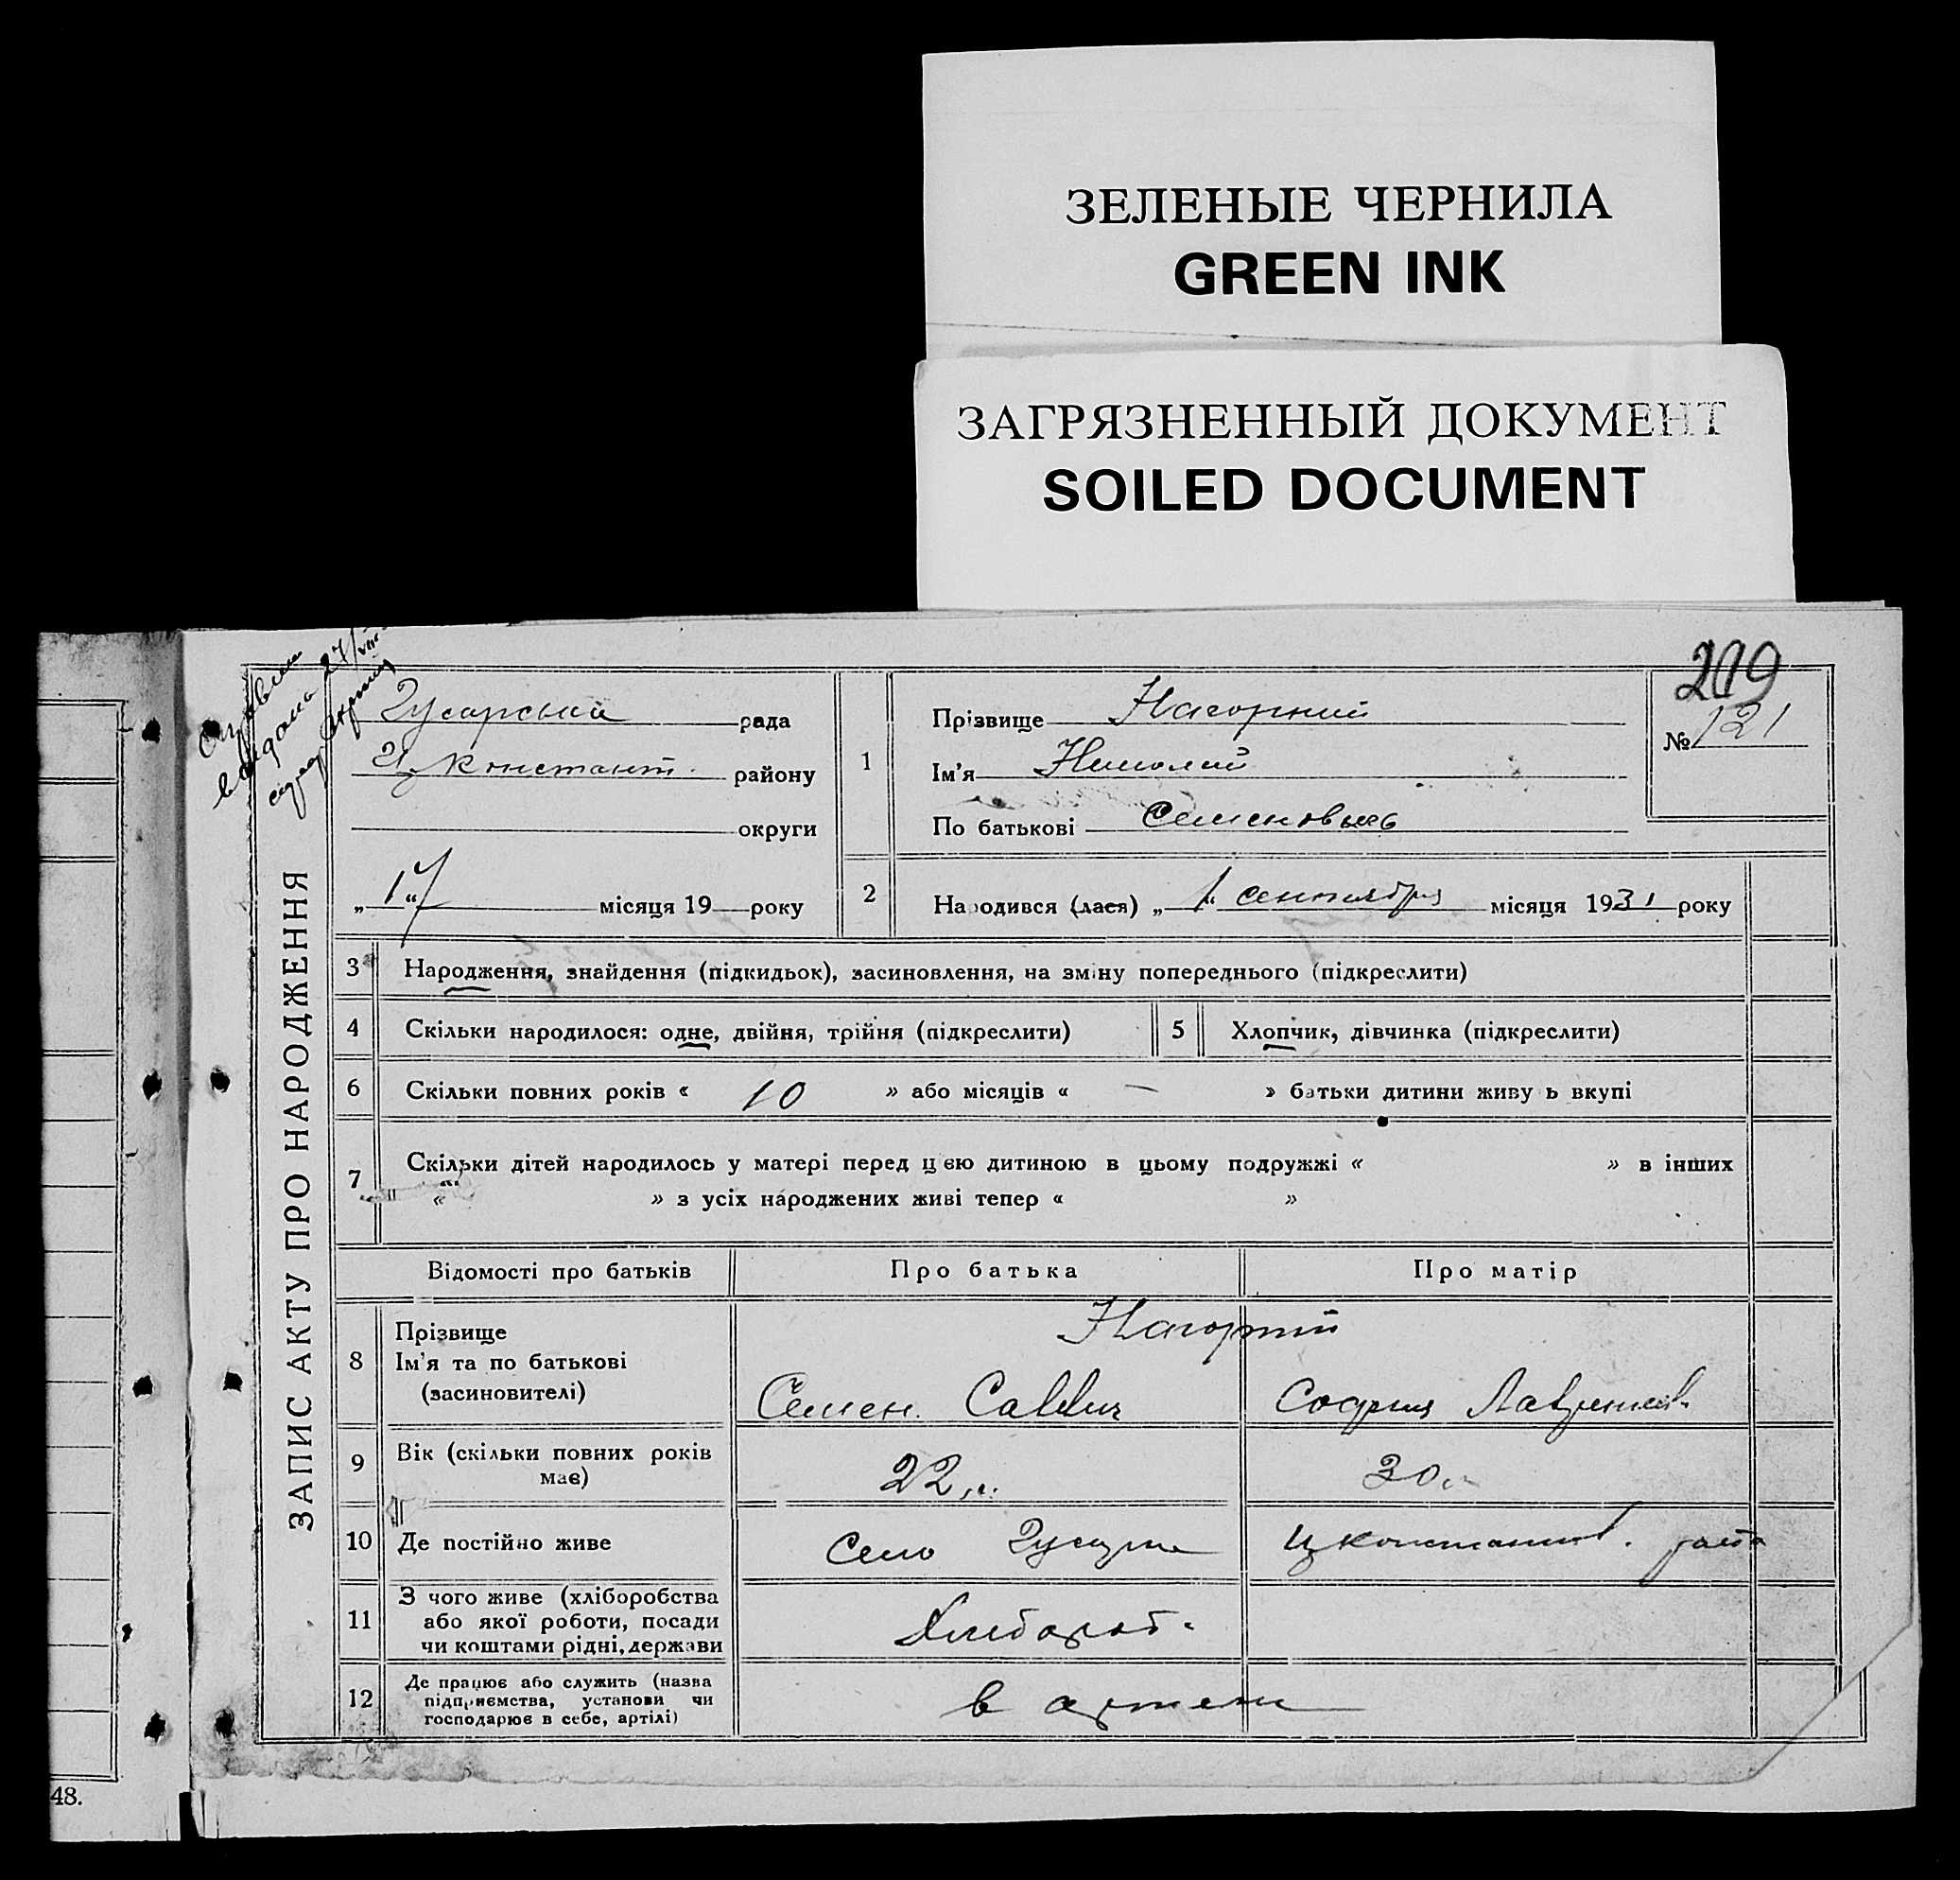 ЗЕЛЕНЫЕ ЧЕРНИЛА
GREEN INK
ЗАГРЯЗНЕННЫЙ ДОКУМЕНТ
SOILED DOCUMENT
48.
ЗАПИС АКТУ ПРО НАРОДЖЕННЯ
видана 27/VIII
рада
району
округи
„ 17 “ місяця 19 року
1 Прізвище Нагорний
Ім'я Николай
По батькові Семенович
219
№ 121
2 Народився (лася) „ 1 “ сентября місяця 1931 року
3 Народження, знайдення (підкидьок), засиновлення, на зміну попереднього (підкреслити)
4 Скільки народилося: одне, двійня, трійня (підкреслити)
5 Хлопчик, дівчинка (підкреслити)
6 Скільки повних років « 10 » або місяців « — » батьки дитини живуть вкупі
7 Скільки дітей народилось у матері перед цією дитиною в цьому подружжі « » в інших
« » з усіх народжених живі тепер « »
Відомості про батьків Про батька Про матір
Нагорний
8 Прізвище
Ім'я та по батькові
(засиновителі)
Семен Саввич
София
9 Вік (скільки повних років
має)
22 30
10 Де постійно живе
Село
11 З чого живе (хліборобства
або якої роботи, посади
чи коштами рідні, держави
Хлебороб.
12 Де працює або служить (назва
підприємства, установи чи
господарює в себе, артілі)
в артели